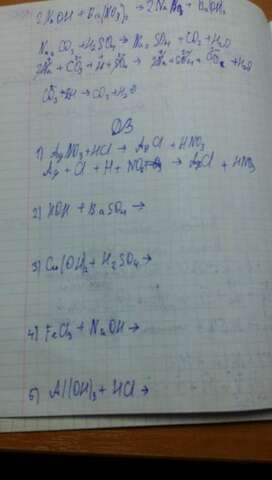 2NaOH + Ba(NO3)2 → 2NaNO3 + Ba(OH)2
Na2CO3 + H2SO4 → Na2SO4 + CO2 + H2O
CO3 + 2H → CO2 + H2O
ДЗ
1) AgNO3 + HCl → AgCl + HNO3
Ag + Cl + H + NO3 → AgCl + HNO3
2) KOH + BaSO4 →
3) Cu(OH)2 + H2SO4 →
4) FeCl3 + NaOH →
5) Al(OH)3 + HCl →